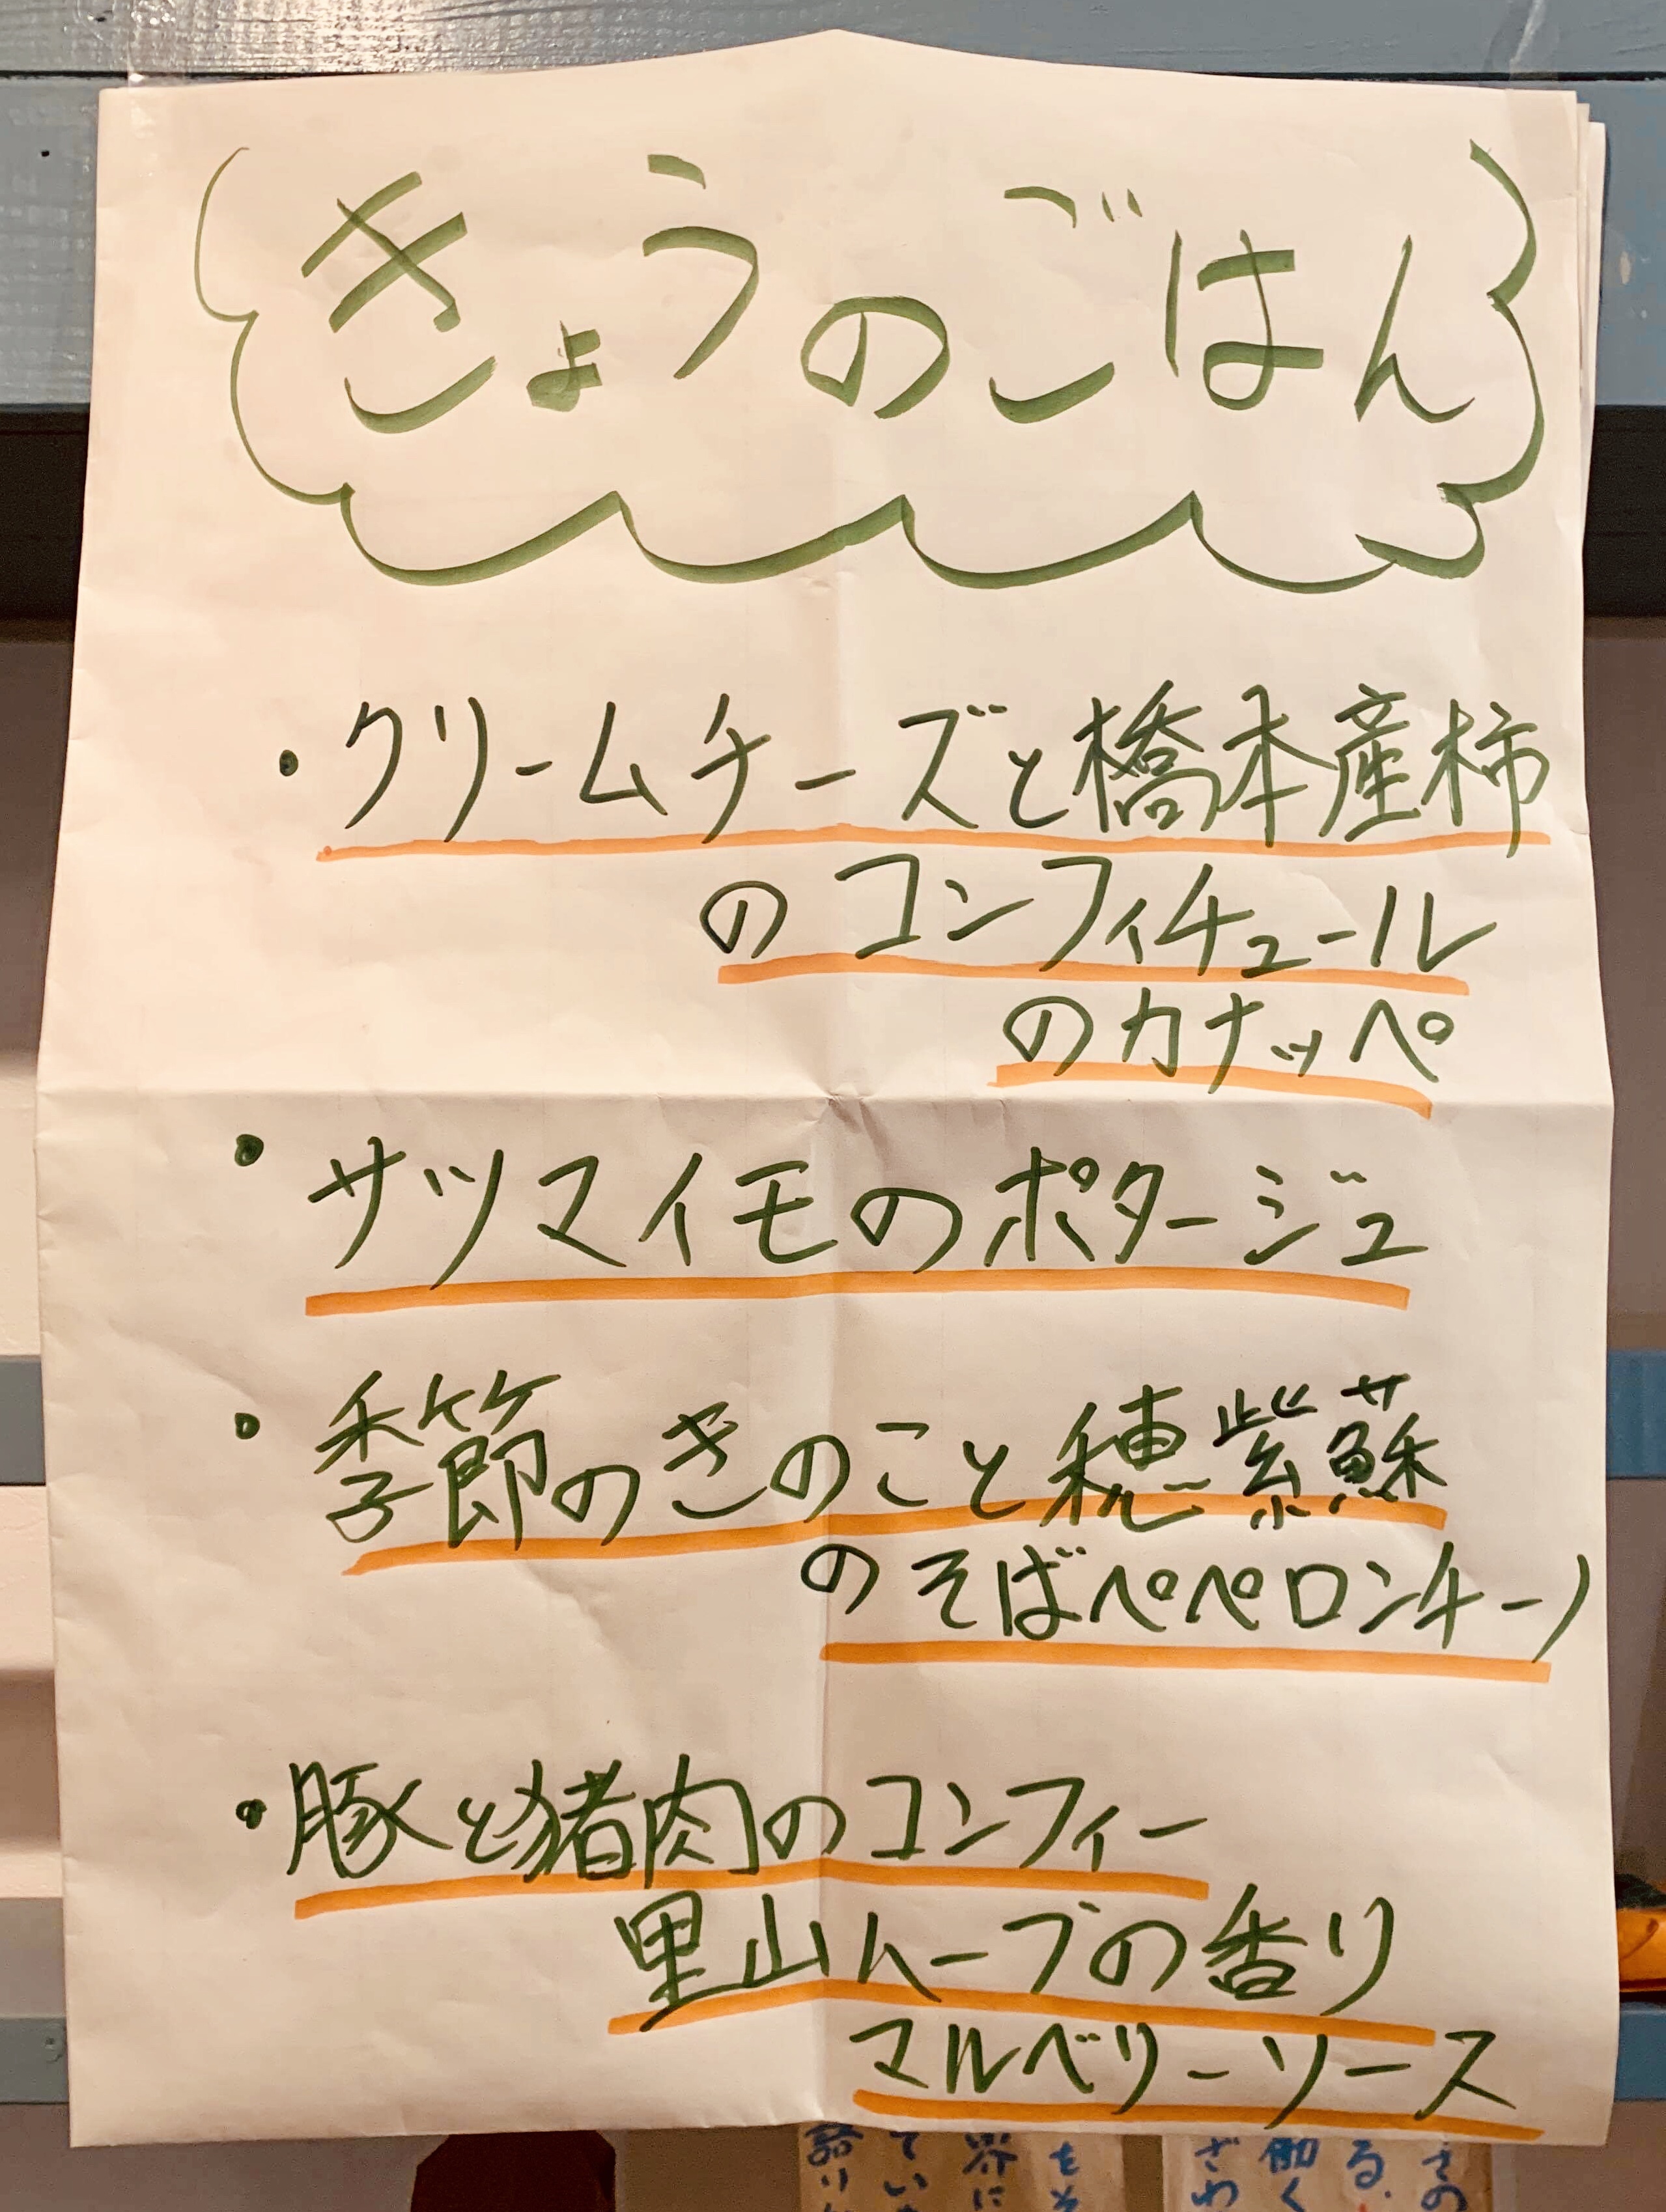 きょうのごはん
・クリームチーズと橋本産柿
のコンフィチュール
のカナッペ
・サツマイモのポタージュ
・季節のきのこと穂紫蘇
のそばペペロンチーノ
・豚と猪肉のコンフィー
里山ハーブの香り
マルベリーソース